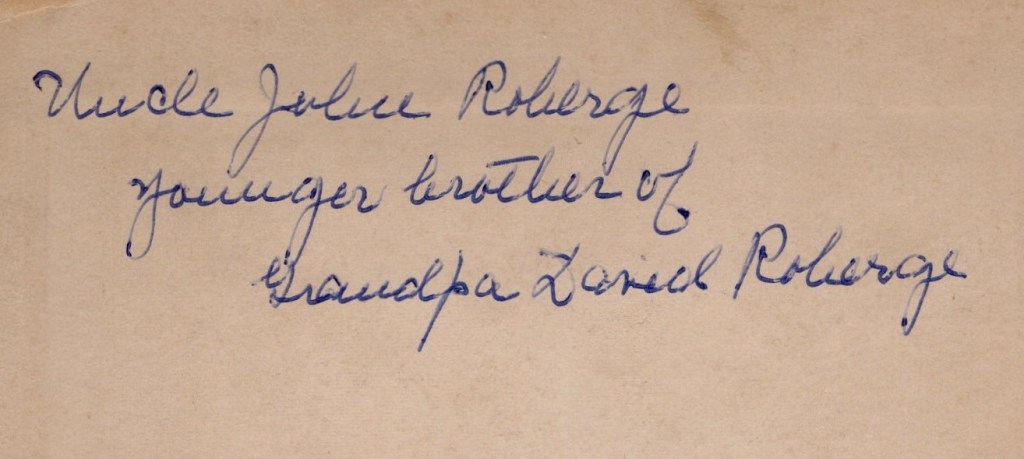 Uncle John Roberge
younger brother of
Grandpa David Roberge